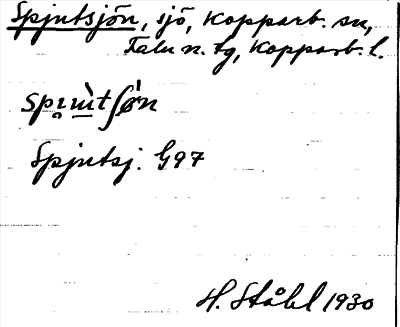 Spjutsjön, sjö, Kopparb. sn,
Falu n. tg, Kopparb. l.
Spjutsj. G97
H. Ståhl 1930